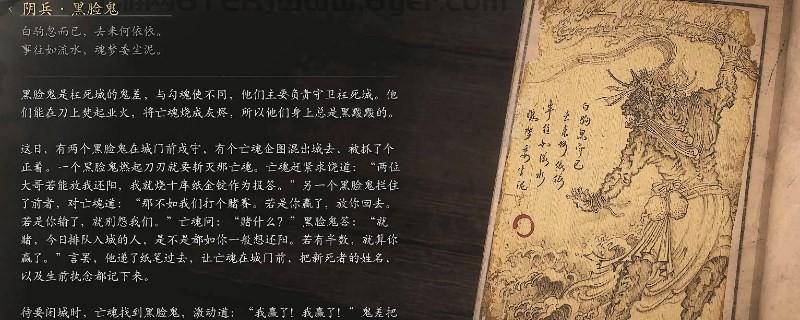 阴兵·黑脸鬼
白驹忽而已，去来何依依。
事往如流水，魂梦委尘泥。
黑脸鬼是枉死城的鬼差，与勾魂使不同，他们主要负责守卫枉死城。他
们能在刀上焚起业火，将亡魂烧成灰烬，所以他们身上总是黑黢黢的。
这日，有两个黑脸鬼在城门前戍守，有个亡魂企图混出城去，被抓了个
正着。一个黑脸鬼燃起刀刃就要斩灭那亡魂。亡魂赶紧求饶道：“两位
大哥若能放我还阳，我就烧十库纸金锭作为报答。”另一个黑脸鬼拦住
了前者，对亡魂道：“那不如我们打个赌赛。若是你赢了，放你回去。
若是你输了，就别怨我们。”亡魂问：“赌什么？”黑脸鬼答：“就
赌，今日排队入城的人，是不是都如你一般想还阳。若有半数，就算你
赢了。”言罢，他递了纸笔过去，让亡魂在城门前，把新死者的姓名、
以及生前执念都记下来。
待要闭城时，亡魂找到黑脸鬼，激动道：“我赢了！我赢了！”鬼差把
白驹忽而已
去来何依依
事往如流水
魂梦委尘泥